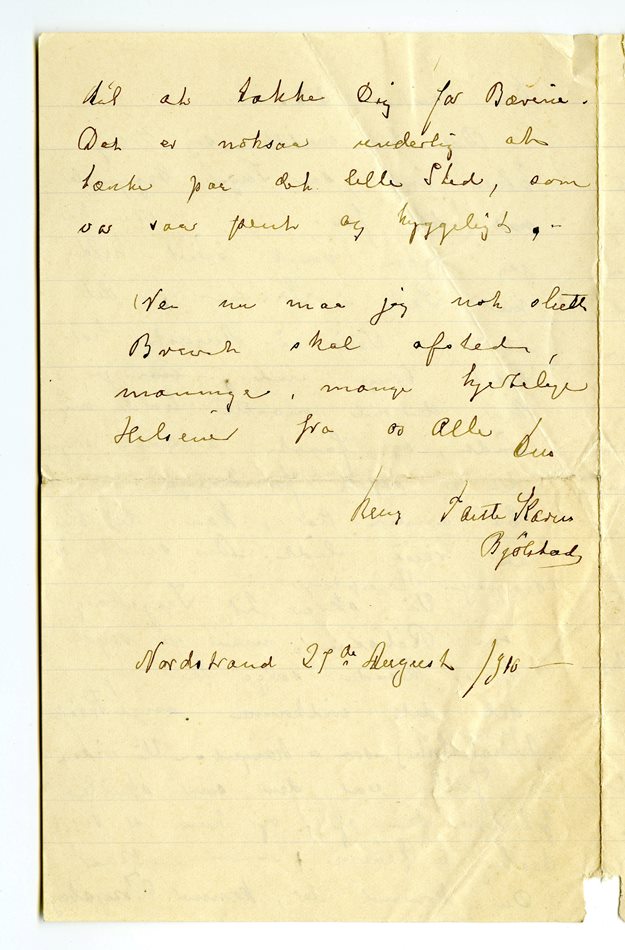 til at takke Dig for Bærene.
Det er noksaa underlig at
tænke paa det lille Sted, som
var saa pent og hyggeligt, –
Nei nu maa jeg nok slutte
Brevet skal afsted,
mange, mange hjertelige
Helsener fra os Alle
Din
Tante Karen
Bjølstad
Nordstrand 27de August 1910 –